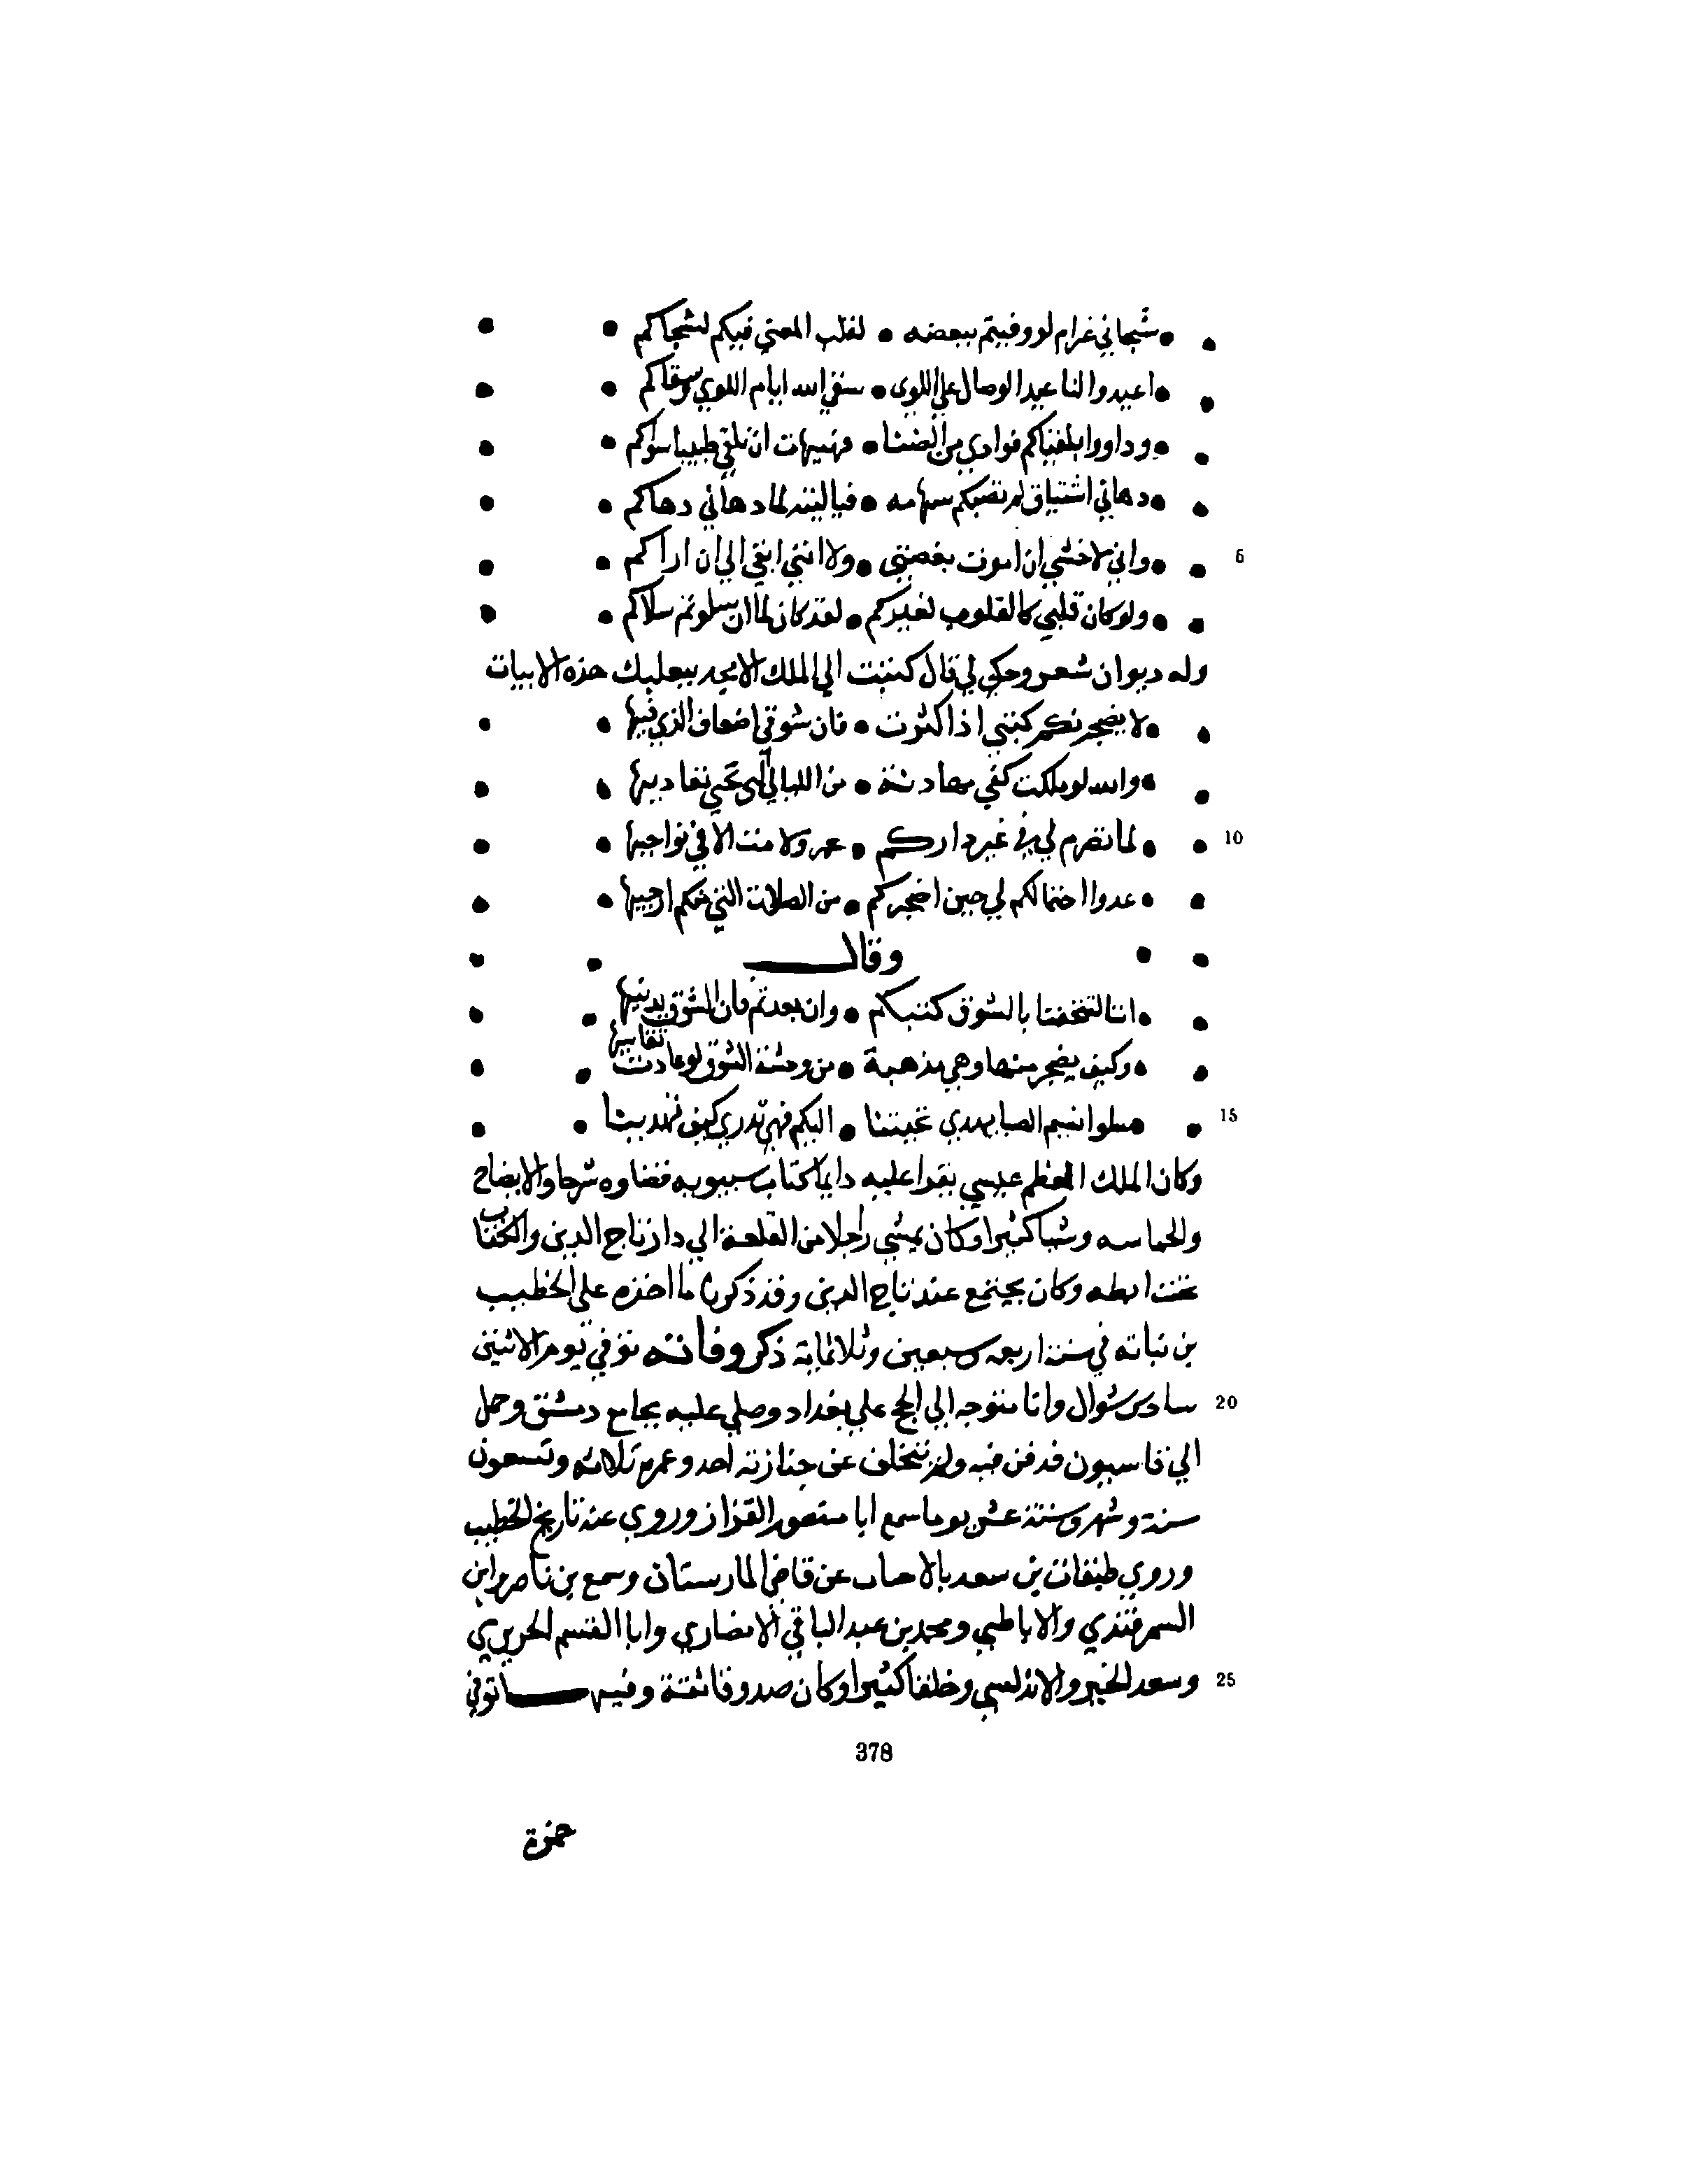 شجاني غرام لو وفيتم ببعضه • لقلب المعني فيكم لشجاكم
اعيدوا لنا عيد الوصال علي اللوى • سقي الله ايام اللوي وسقاكم
وداووا بلقياكم فوادي من الضنا • فهيهات ان يلقي طبيبا سواكم
دهاني اشتياق لم تصبكم سهامه • فياليته لما دهاني دهاكم
5 واني لاخشي ان اموت بغصتي • ولا انني ابقي الي ان اراكم
ولو كان قلبي كالقلوب لغيركم • لقد كان لما ان سلوتم سلاكم
وله ديوان شعر وحكي لي قال كتبت الي الملك الامجد ببعلبك هذه الابيات
لا يضجرنكم كتبي اذا كثرت • فان شوقي اضعاف الذي فيها
والله لو ملكت كفي مهادنة • من الليالي التي تقاديها
10 لما تصرم لي في غير داركم • عمر ولا مت الا في نواحيها
عدوا احتمالكم لي حين اضجركم • من الصلات التي منكم ارجيها
وقال
انا لتتحفنا بالشوق كتبكم • وان بعدتم فان الشوق يدنيها
وكيف يضجر منها وهي مذهبة • من وحشة الشوق لوعات نقاسيها
15 سلوا نسيم الصبا يهدي تحيتنا • اليكم فهي تدري كيف تهديها
وكان الملك المعظم عيسي يقرا عليه دايما كتاب سيبويه فضا وه شرحا والايضاح
والحماسه وشيا كثيرا وكان يمشي راجلا من القلعة الي دار تاج الدين والكتاب
تحت ابطه وكان يجتمع عند تاج الدين وقد ذكرنا ما اخذه علي الخطيب
بن نباته في سنة اربعه وسبعين وثلاثماية ذكر وفاته توفي يوم الاثنين
20 سادس شوال وانا متوجه الي الحج علي بغداد وصلي عليه بجامع دمشق وحمل
الي قاسيون فدفن فيه ولم يتخلف عن جنازته احد وعمره ثلاثه وتسعون
سنة وشهر وستة عشر يوما سمع ابا منصور القزاز وروي عنه تاريخ الخطيب
وروي طبقات بن سعد بالاجازة عن قاضي المارستان وسمع بن ناصر وابن
السمرقندي والاباطي ومحمد بن عبد الباقي الانصاري وابا القسم الحريري
25 وسعد الخير والاندلسي وخلقا كثيرا وكان صدوقا ثقة وفيها توفي
378
حمزة